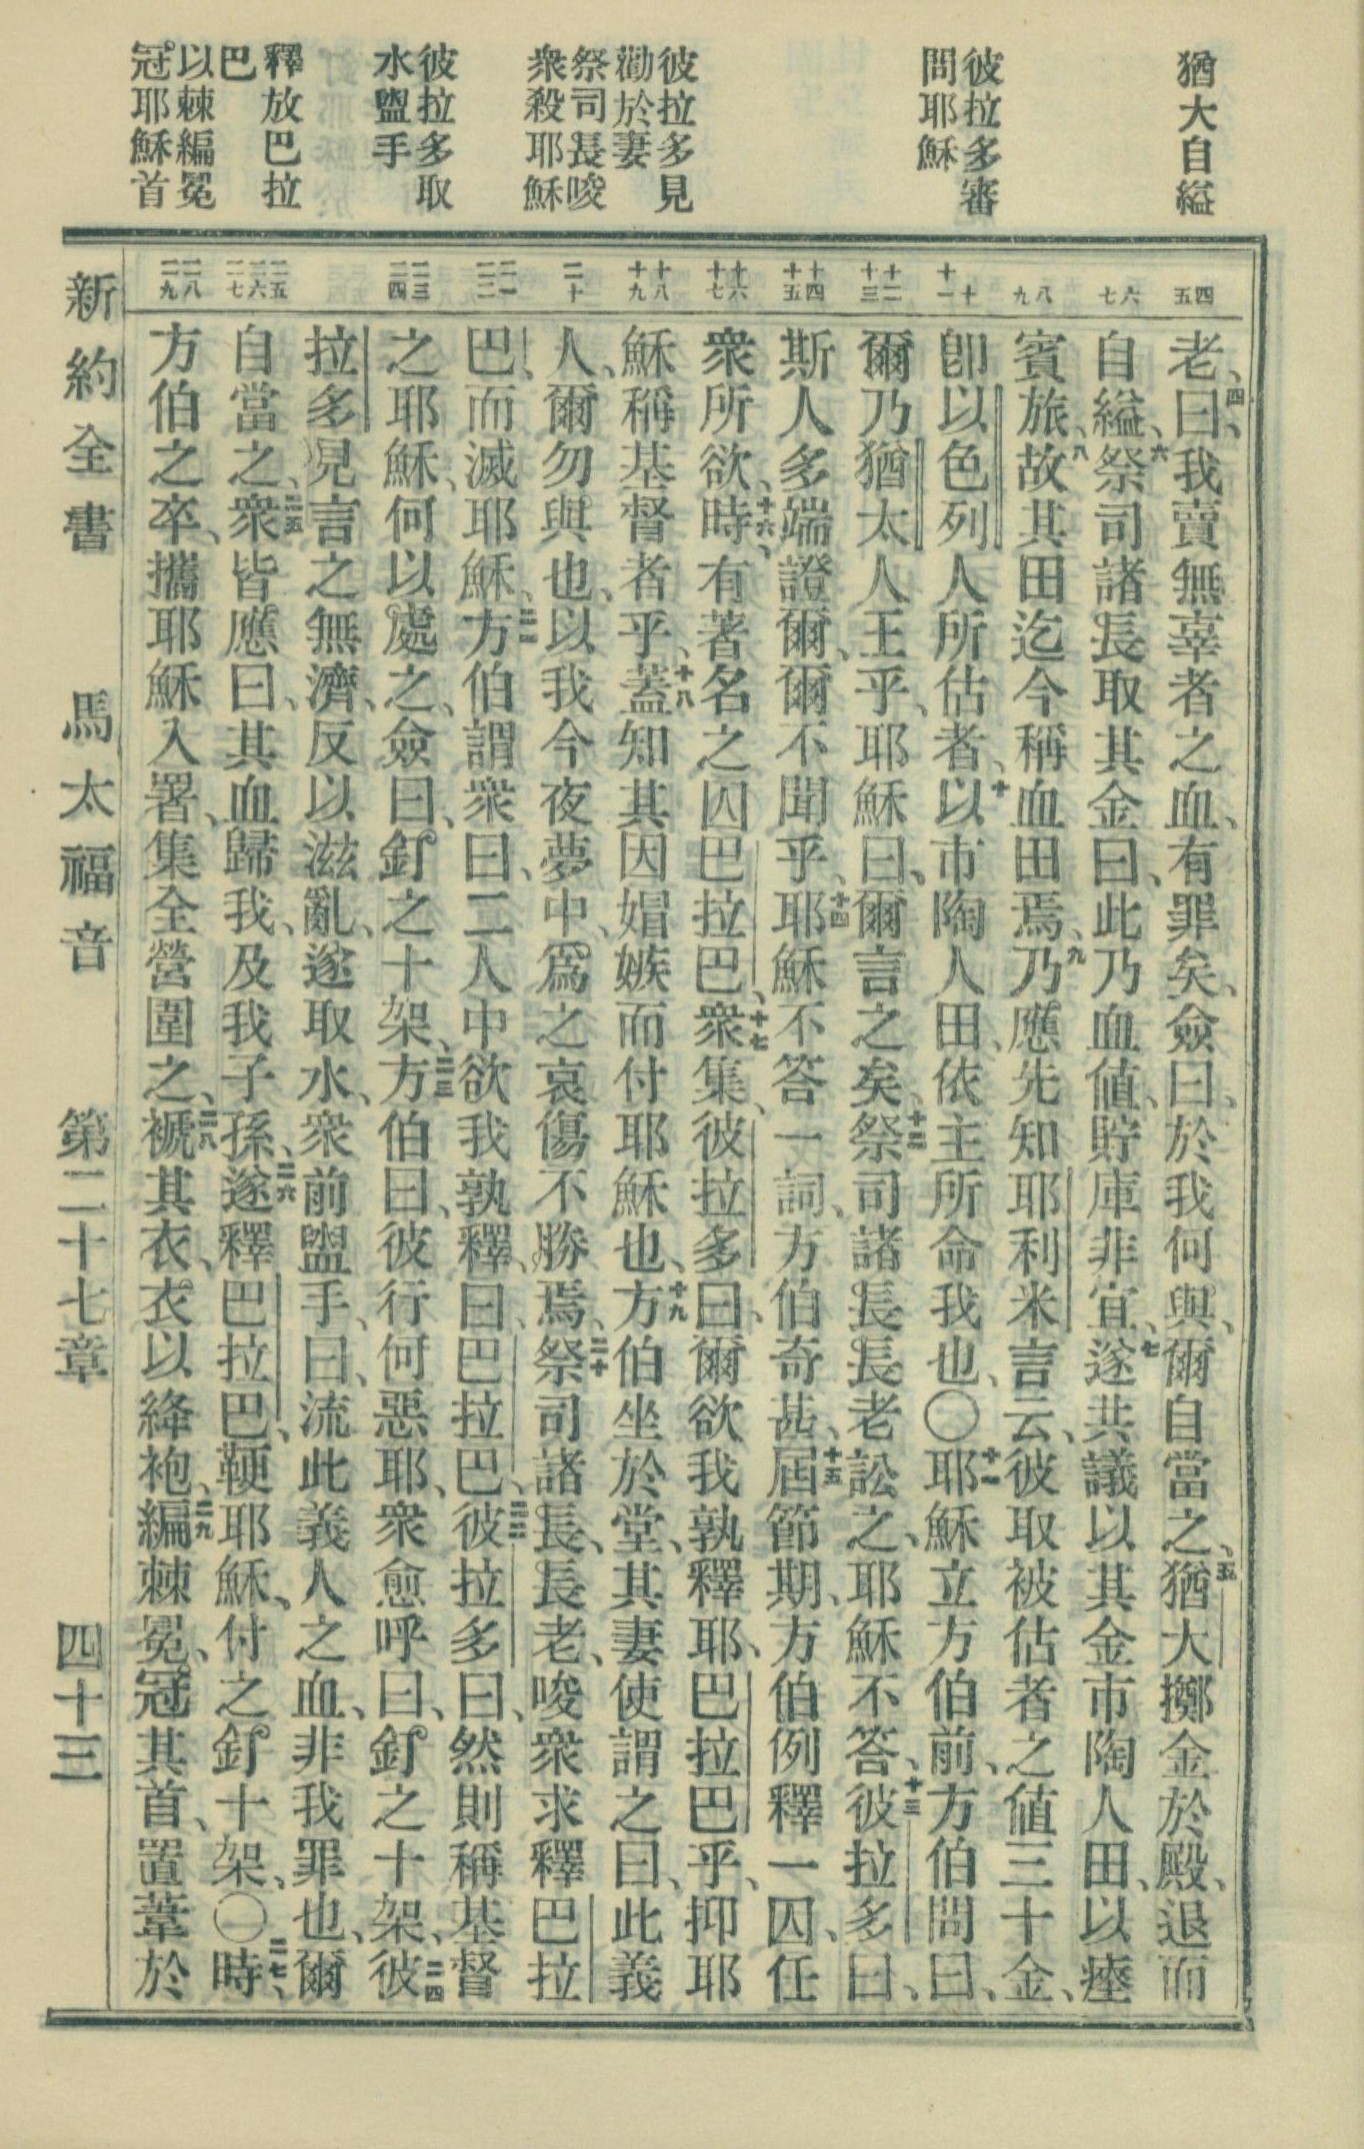 猶大自縊
彼拉多審
問耶穌
彼拉多見
勸於妻
祭司長唆
衆殺耶穌
彼拉多取
水盥手
釋放巴拉
巴
以棘編冕
冠耶穌首
四 五 六 七 八 九 十 十一 十二 十三 十四 十五 十六 十七 十八 十九 二十 二一 二二 二三 二四 二五 二六 二七 二八 二九
老、四曰、我賣無辜者之血、有罪矣、僉曰、於我何與、爾自當之、五猶大擲金於殿、退而
自縊、六祭司諸長取其金曰、此乃血値、貯庫非宜、七遂共議以其金市陶人田、以瘞
賓旅、八故其田迄今稱血田焉、九乃應先知耶利米言云、彼取被估者之値三十金、
卽以色列人所估者、十以市陶人田、依主所命我也、〇十一耶穌立方伯前、方伯問曰、
爾乃猶太人王乎、耶穌曰、爾言之矣、十二祭司諸長長老訟之、耶穌不答、十三彼拉多曰、
斯人多端證爾、爾不聞乎、十四耶穌不答一詞、方伯奇甚、十五屆節期、方伯例釋一囚、任
衆所欲、十六時、有著名之囚巴拉巴、十七衆集、彼拉多曰、爾欲我孰釋耶、巴拉巴乎、抑耶
穌稱基督者乎、十八蓋知其因媢嫉而付耶穌也、十九方伯坐於堂、其妻使謂之曰、此義
人、爾勿與也、以我今夜夢中、爲之哀傷不勝焉、二十祭司諸長、長老、唆衆求釋巴拉
巴、而滅耶穌、二一方伯謂衆曰、二人中欲我孰釋、曰、巴拉巴、二二彼拉多曰、然則稱基督
之耶穌、何以處之、僉曰、釘之十架、二三方伯曰、彼行何惡耶、衆愈呼曰、釘之十架、二四彼
拉多見言之無濟、反以滋亂、遂取水、衆前盥手、曰、流此義人之血、非我罪也、爾
自當之、二五衆皆應曰、其血歸我、及我子孫、二六遂釋巴拉巴、鞭耶穌、付之釘十架、〇二七時、
方伯之卒、攜耶穌入署、集全營圍之、二八褫其衣、衣以絳袍、二九編棘冕、冠其首、置葦於
新約全書 馬太福音 第二十七章 四十三